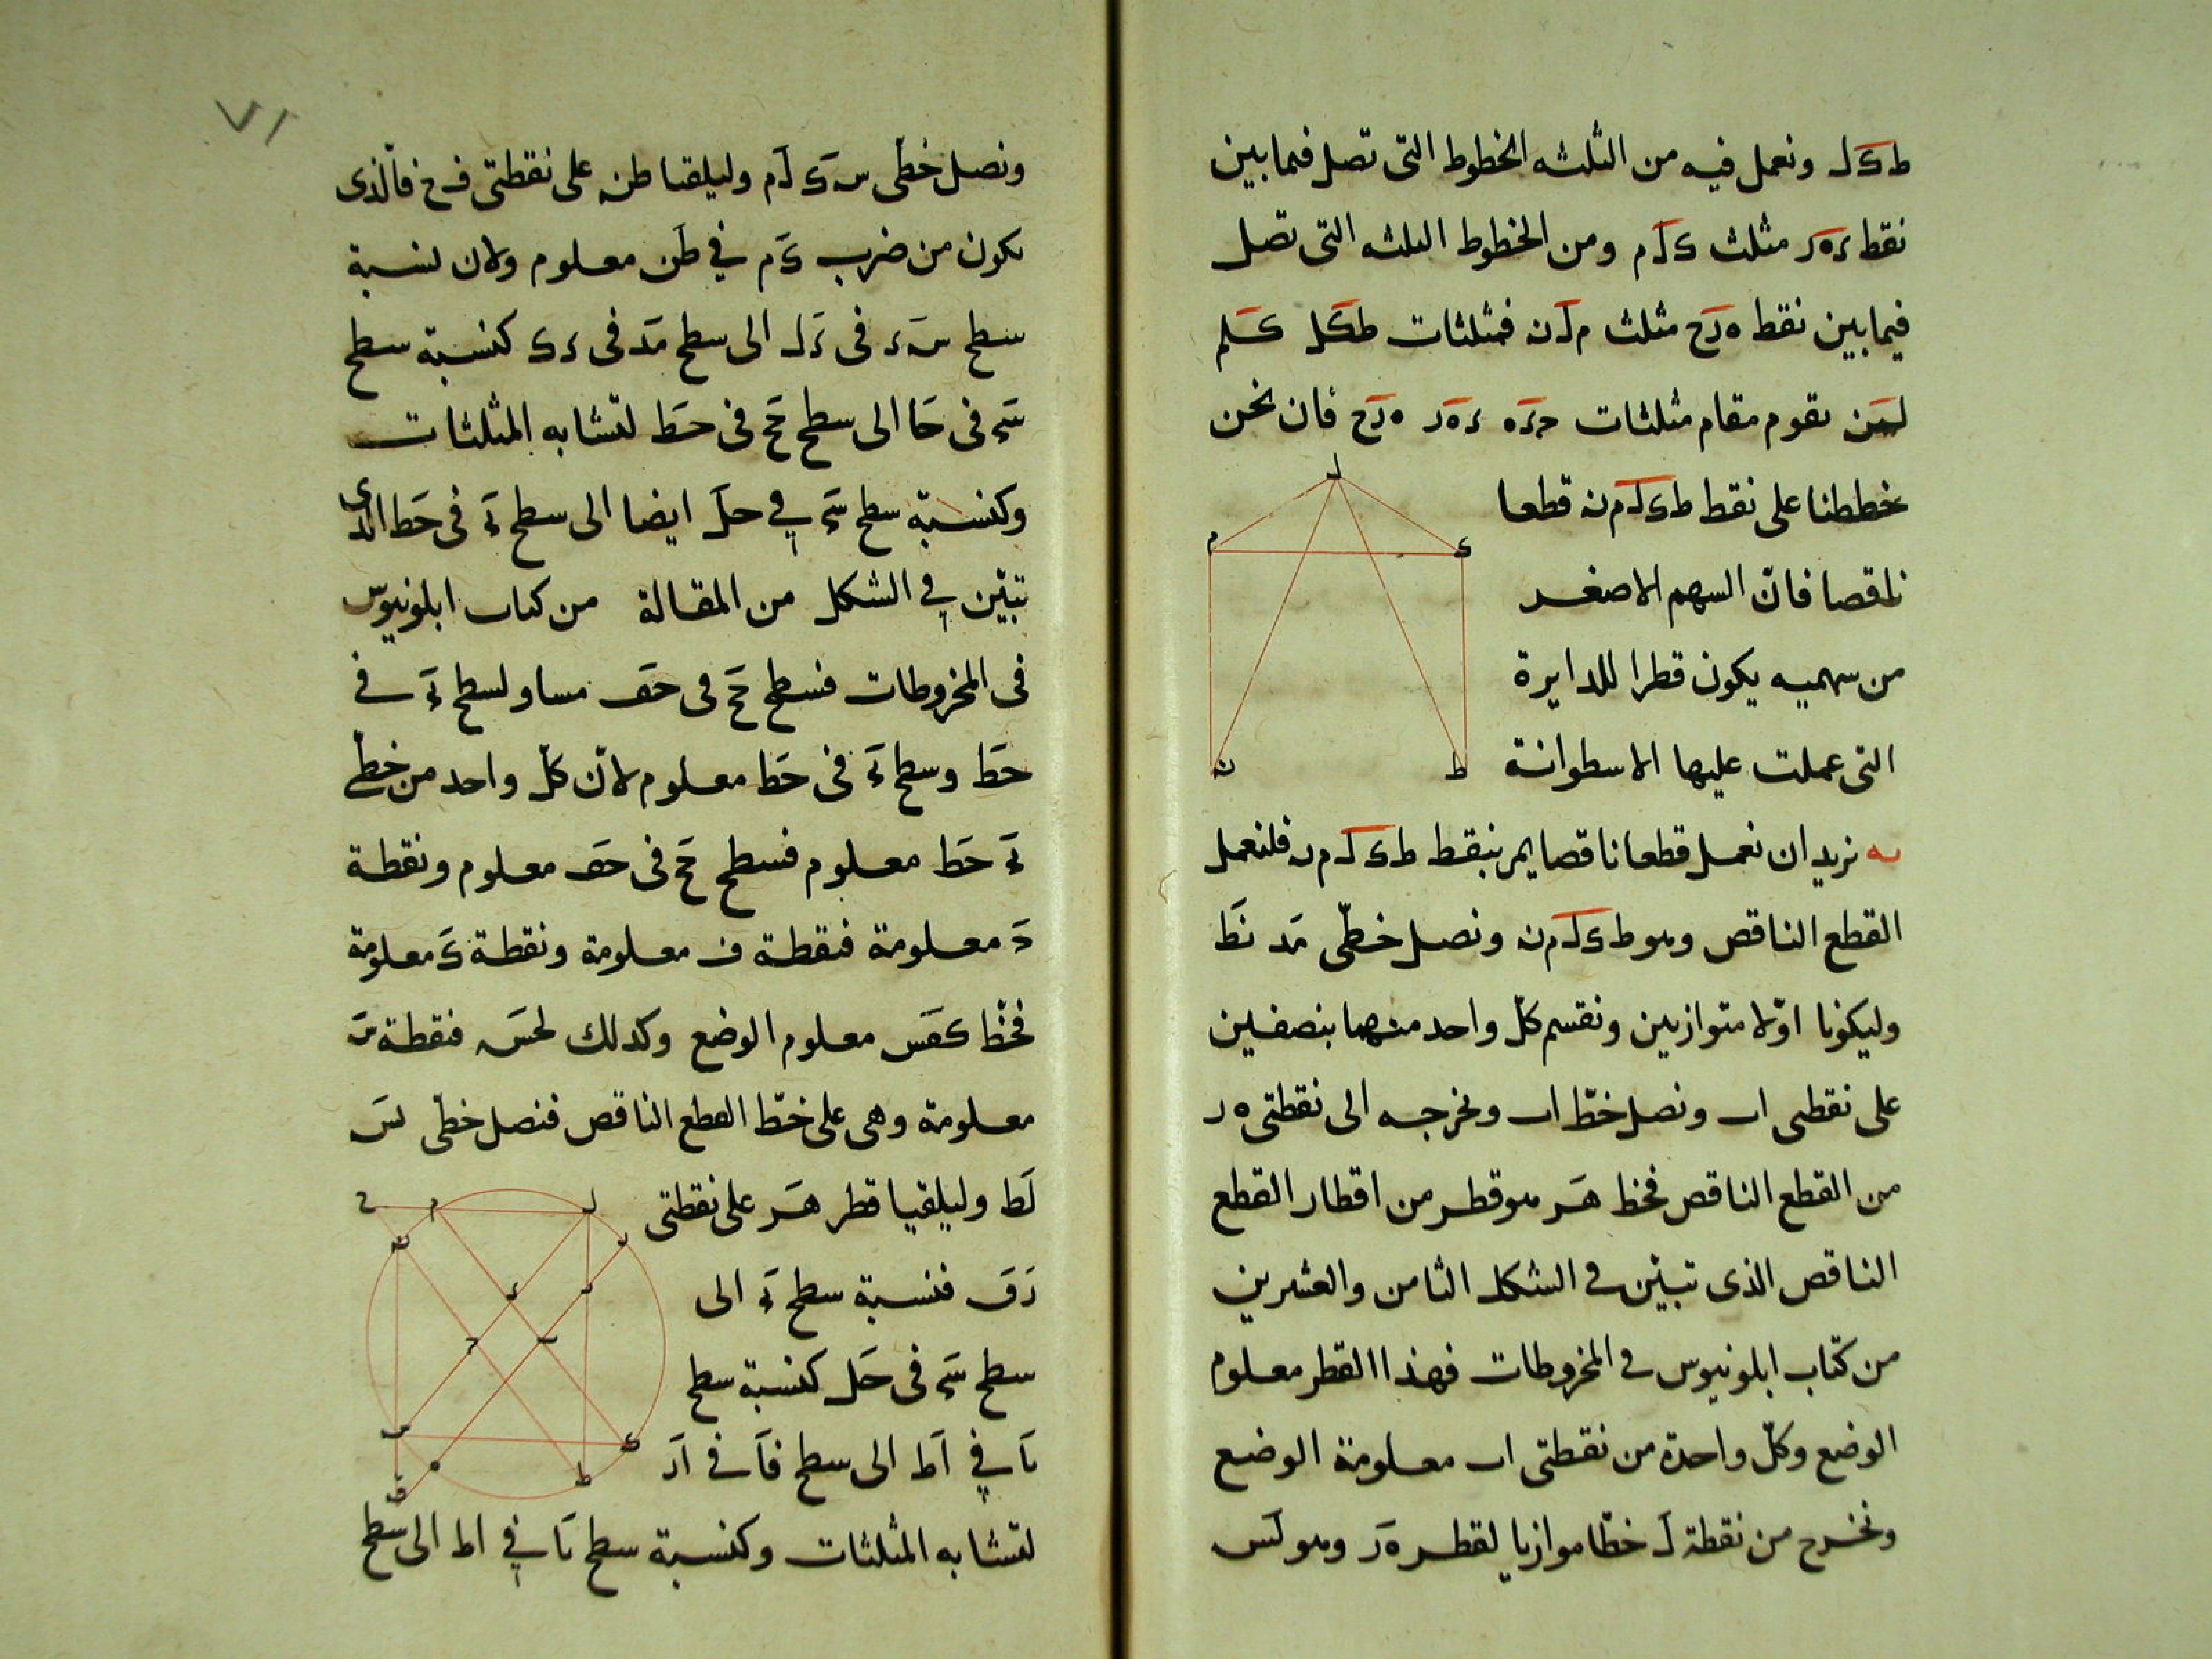 ط ک ل ونعمل فيه من الثلثه الخطوط التى تصل فيما بين
نقط ء ه ر مثلث ک ل م ومن الخطوط الثلثه التى تصل
فيما بين نقط ه ر ح مثلث م ل ن فمثلثات طکل کلم
لمن يقوم مقام مثلثات ء ه ر ه ر ح فان نحن
خططنا على نقط ط ک ل م ن قطعا
ناقصا فانّ السهم الاصغر
من سهميه يكون قطرا للدايرة
التى عملت عليها الاسطوانة
ل
م ک
ن ط
يه نريد ان نعمل قطعا ناقصا يمر بنقط ط ک ل م ن فلنعمل
القطع الناقص وهو ط ک ل م ن ونصل خطّى مد نط
وليكونا اوّلا متوازيين ونقسم كلّ واحد منهما بنصفين
على نقطى اب ونصل خطّ اب ونخرجه الى نقطتى ه ر
من القطع الناقص فخط هر هو قطر من اقطار القطع
الناقص الذى تبيّن فى الشكل الثامن والعشرين
من كتاب ابلونيوس فى المخروطات فهذا القطر معلوم
الوضع وكلّ واحدة من نقطتى اب معلومة الوضع
ونخرج من نقطة ل خطّا موازيا لقطر ه ر وهو لس
٧١
ونصل خطّى س ک ل م وليلقيا طن على نقطتى ف خ فالّذى
يكون من ضرب ک م في طن معلوم ولان نسبة
سطح س ء فى ء ل الى سطح مد فى ء ک كنسبة سطح
فى حا الى سطح فى حط لتشابه المثلثات
وكنسبة سطح في حل ايضا الى سطح فى حط الذى
تبيّن في الشكل من المقالة من كتاب ابلونيوس
فى المخروطات فسطح فى حف مساو لسطح فى
حط وسطح فى حط معلوم لانّ كلّ واحد من خطى
حط معلوم فسطح فى حف معلوم ونقطة
معلومة فنقطة ف معلومة ونقطة ک معلومة
فخطّ کفس معلوم الوضع وكذلك لحس فنقطة س
معلومة وهى على خطّ القطع الناقص فنصل خطّى لس
لط وليلقيا قطر هر على نقطتى
دق فنسبة سطح الى
سطح فى حل كنسبة سطح
في اط الى سطح قا فى اد
لتشابه المثلثات وكنسبة سطح في اط الى سطح
ل م
ن ر
ء د
ح ب
س ک
ه ط
ق